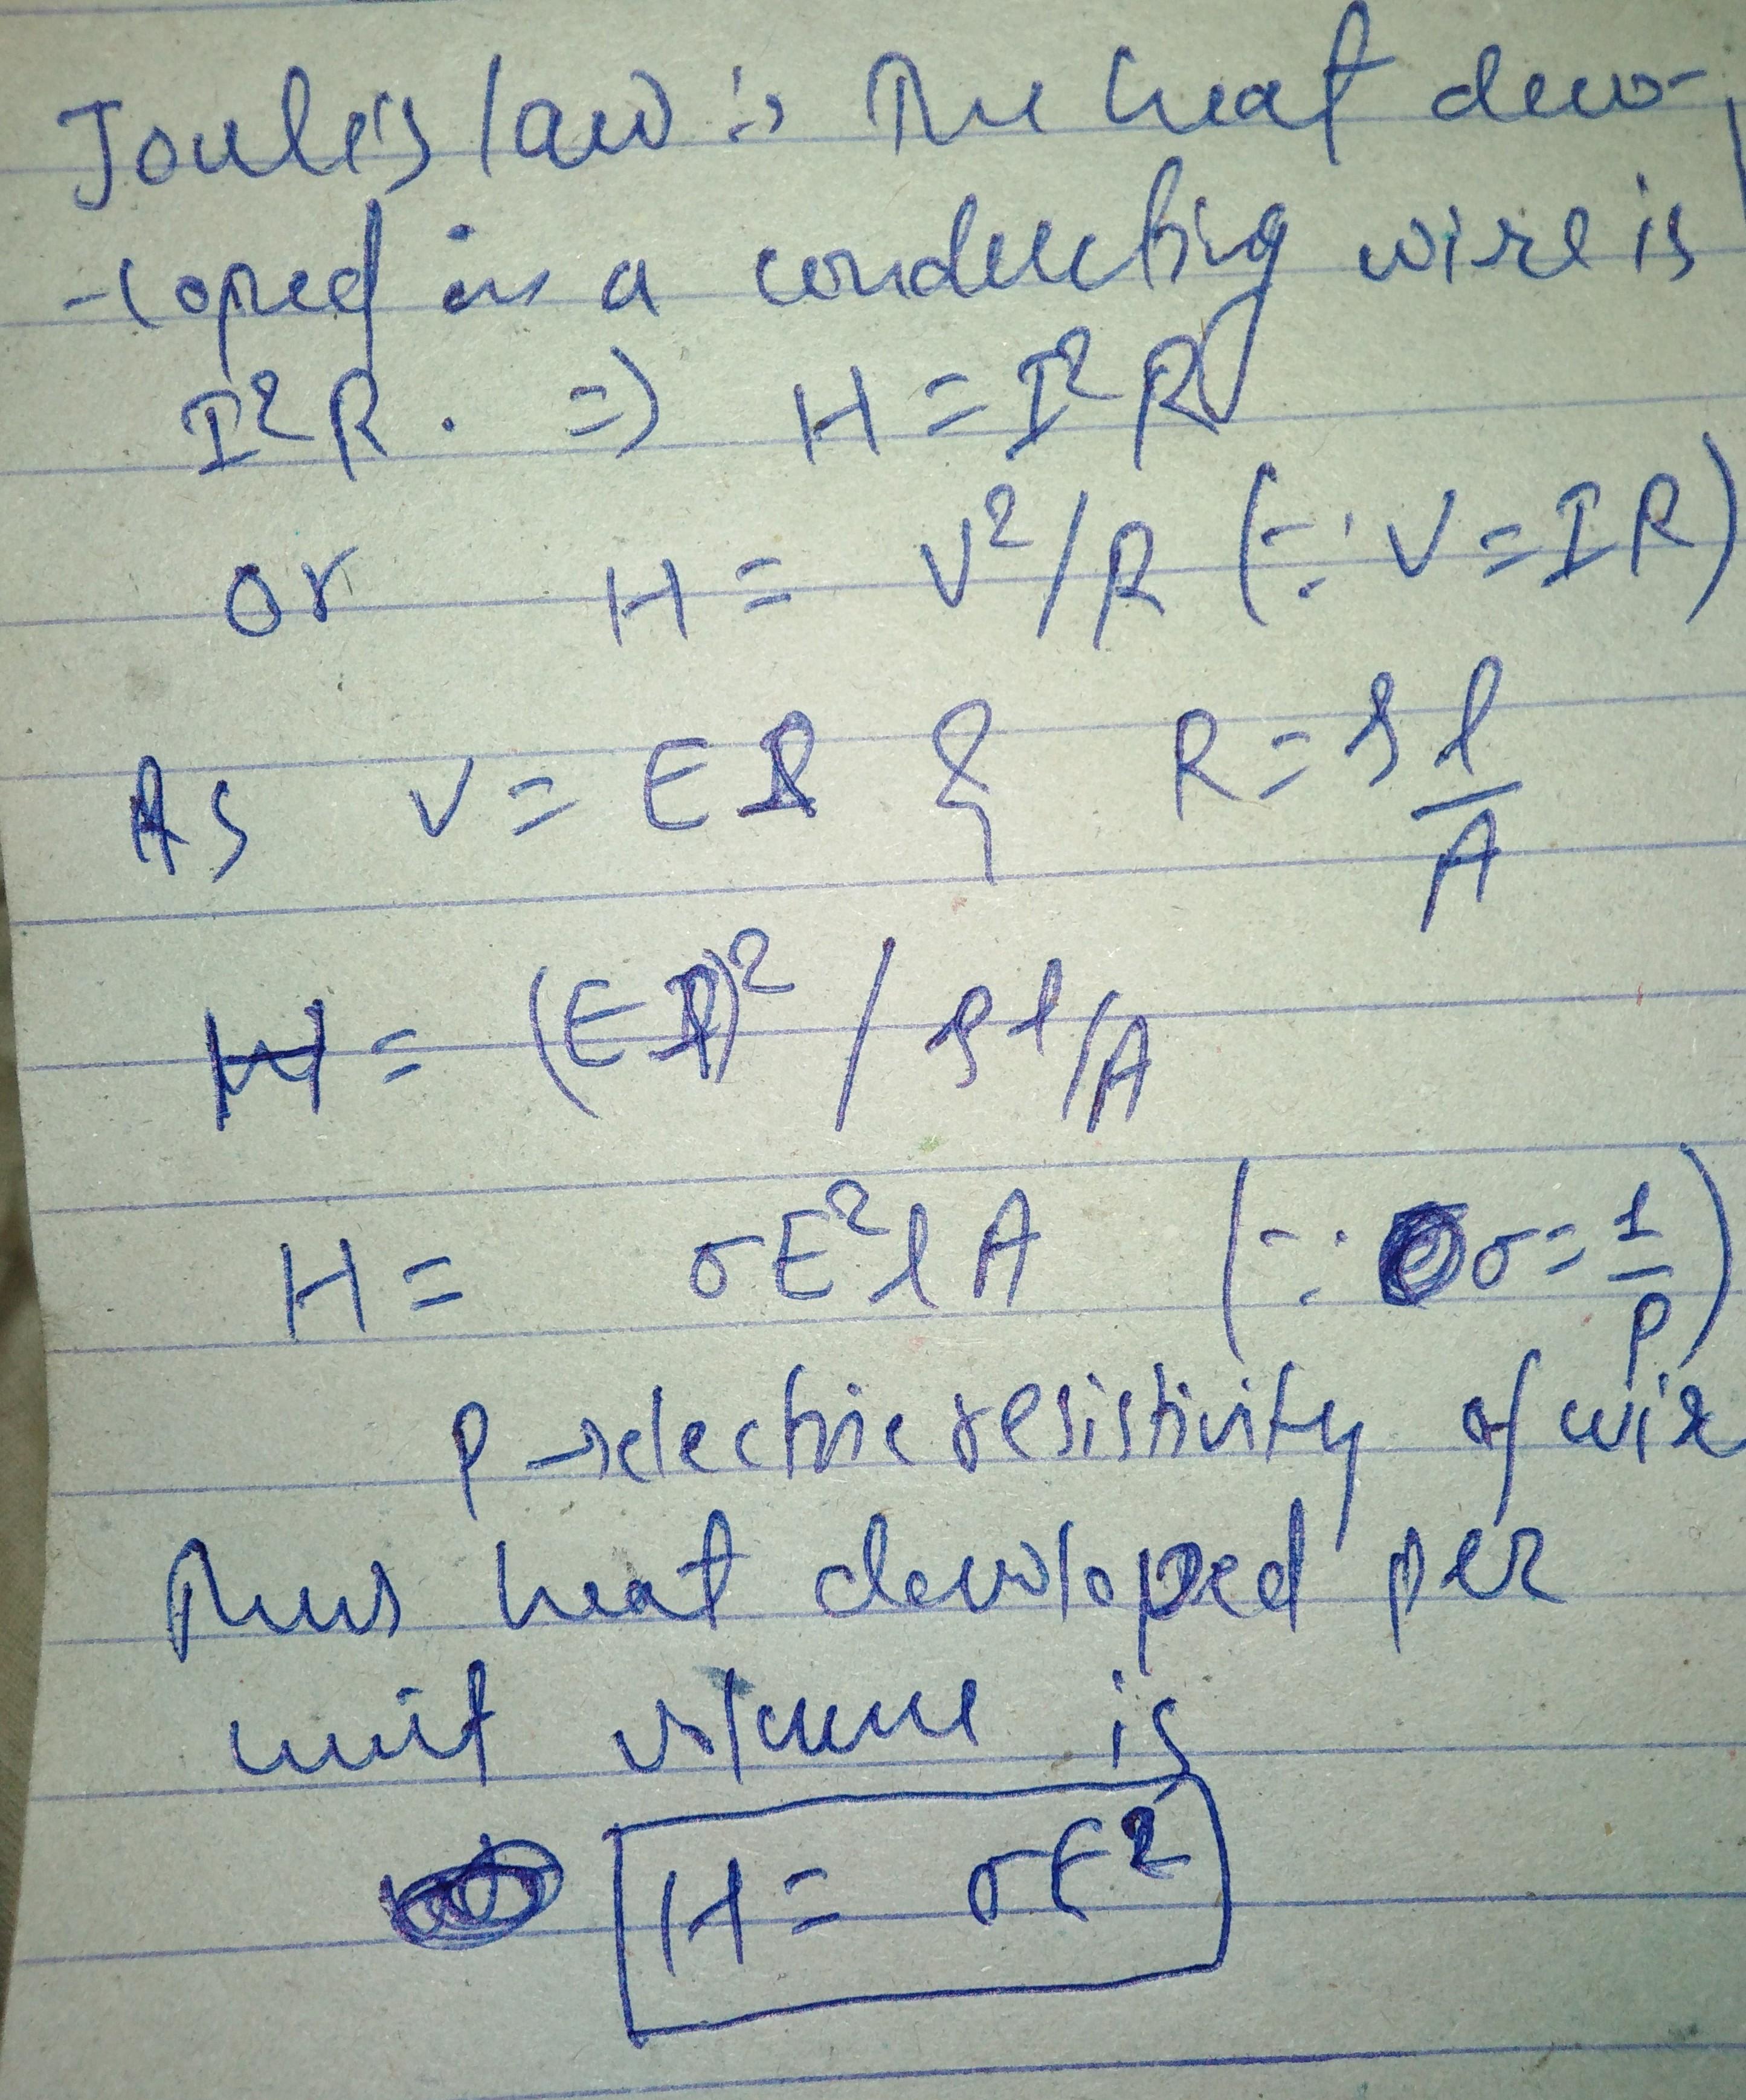 Joule's law :→ The heat deve-
-loped in a conducting wire is
I²R . ⇒ H = I²R
or H = V²/R (∵ V = IR)
As V = El & R = ρ l/A
H = (El)² / ρl/A
H = σE²lA (∵ σ = 1/ρ)
ρ → electric resistivity of wire
Thus heat developed per
unit volume is
H = σE²